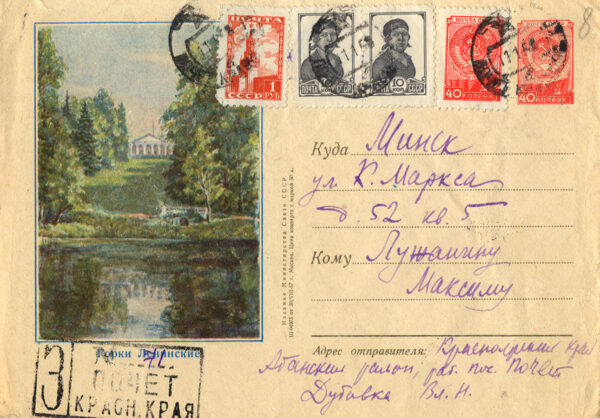 ПОЧТА
1
РУБ
СССР
ПОЧТА СССР
10
КОП. СССР
ПОЧТА
СССР
40 КОПЕЕК
40 КОПЕЕК
8
Куда Минск
ул К. Маркса
д. 52 кв. 5
Кому Лужанину
Максиму
Издание Министерства Связи СССР
г. Москва. Цена конверта с маркой
Горки Ленинские
Адрес отправителя: Красноярский край
Абанский район, пос. Почет
Дубовка Вл. Н.
З
ПОЧЕТ
КРАСН. КРАЯ